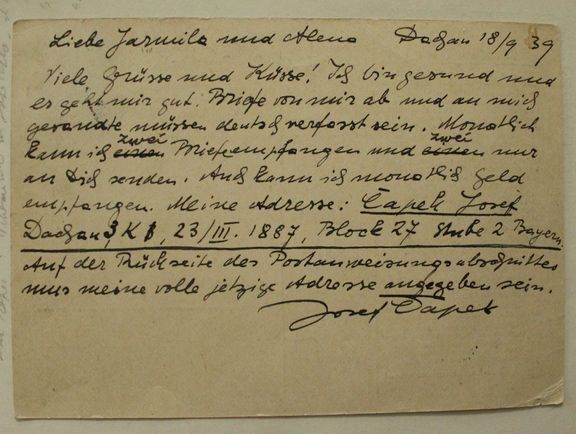 Liebe Jarmila und Alena Dachau 18/9 39
Viele Grüsse und Küsse! Ich bin gesund und
es geht mir gut. Briefe von mir ab und an mich
gesandte müssen deutsch verfasst sein. Monatlich
kann ich zwei einen Brief empfangen und zwei einen nur
an Dich senden. Auch kann ich monatlich Geld
empfangen. Meine Adresse: Čapek Josef
Dachau 3 K, 23/III. 1887, Block 27 Stube 2 Bayern.
Auf der Rückseite des Postanweisungsabschnittes
mus meine volle jetzige Adresse angegeben sein.
Josef Čapek